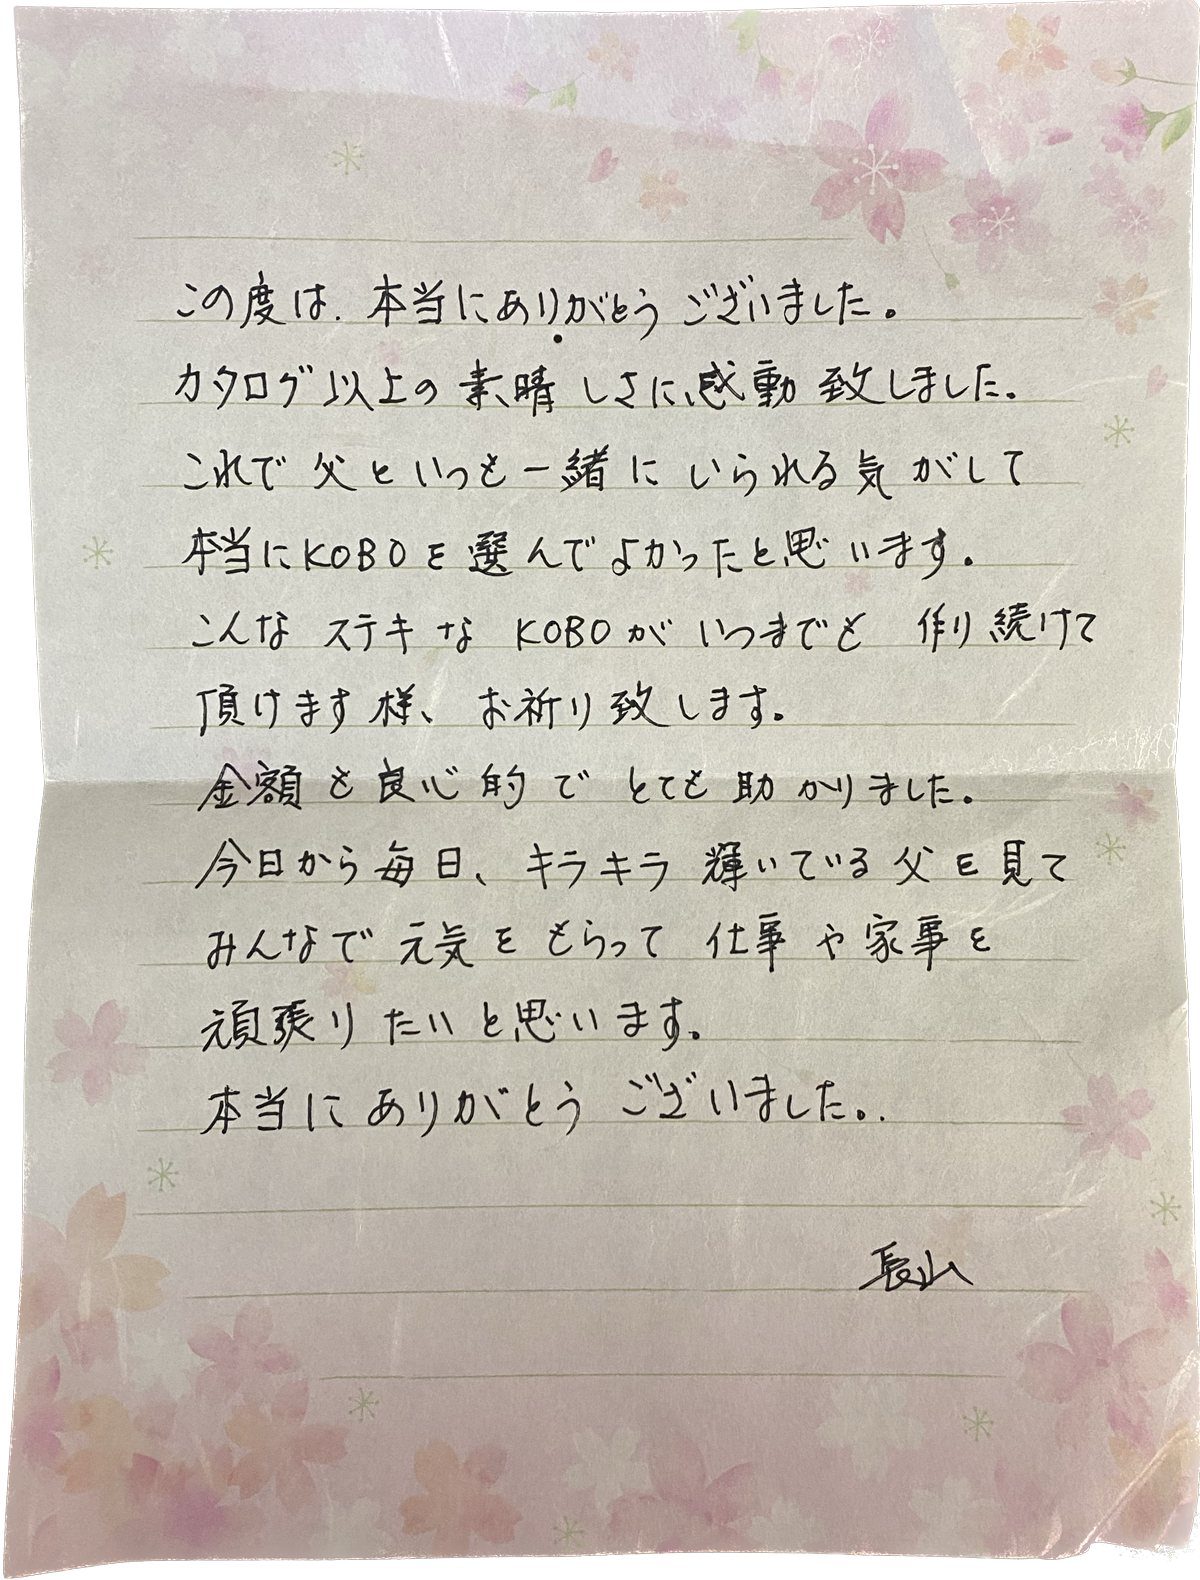 この度は、本当にありがとうございました。
カタログ以上の素晴しさに、感動致しました。
これで父といつも一緒にいられる気がして
本当にKOBOを選んでよかったと思います。
こんなステキなKOBOがいつまでも作り続けて
頂けます様、お祈り致します。
金額も良心的でとても助かりました。
今日から毎日、キラキラ輝いている父を見て
みんなで元気をもらって仕事や家事を
頑張りたいと思います。
本当にありがとうございました。.
長山